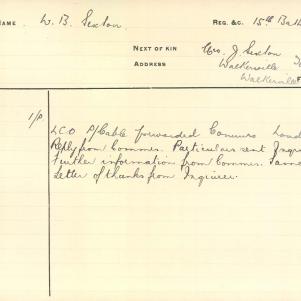 NAME W. B. Sexton REG. &C. 15th Batt
NEXT OF KIN Mrs. J. Sexton
ADDRESS Walkerville
Walkerville
1/P.
L.C.O P/Cable forwarded Commrs Lond
Reply from Commrs. Particulars sent Inquirer
Further information from Commrs. Same
Letter of thanks from Inquirer.